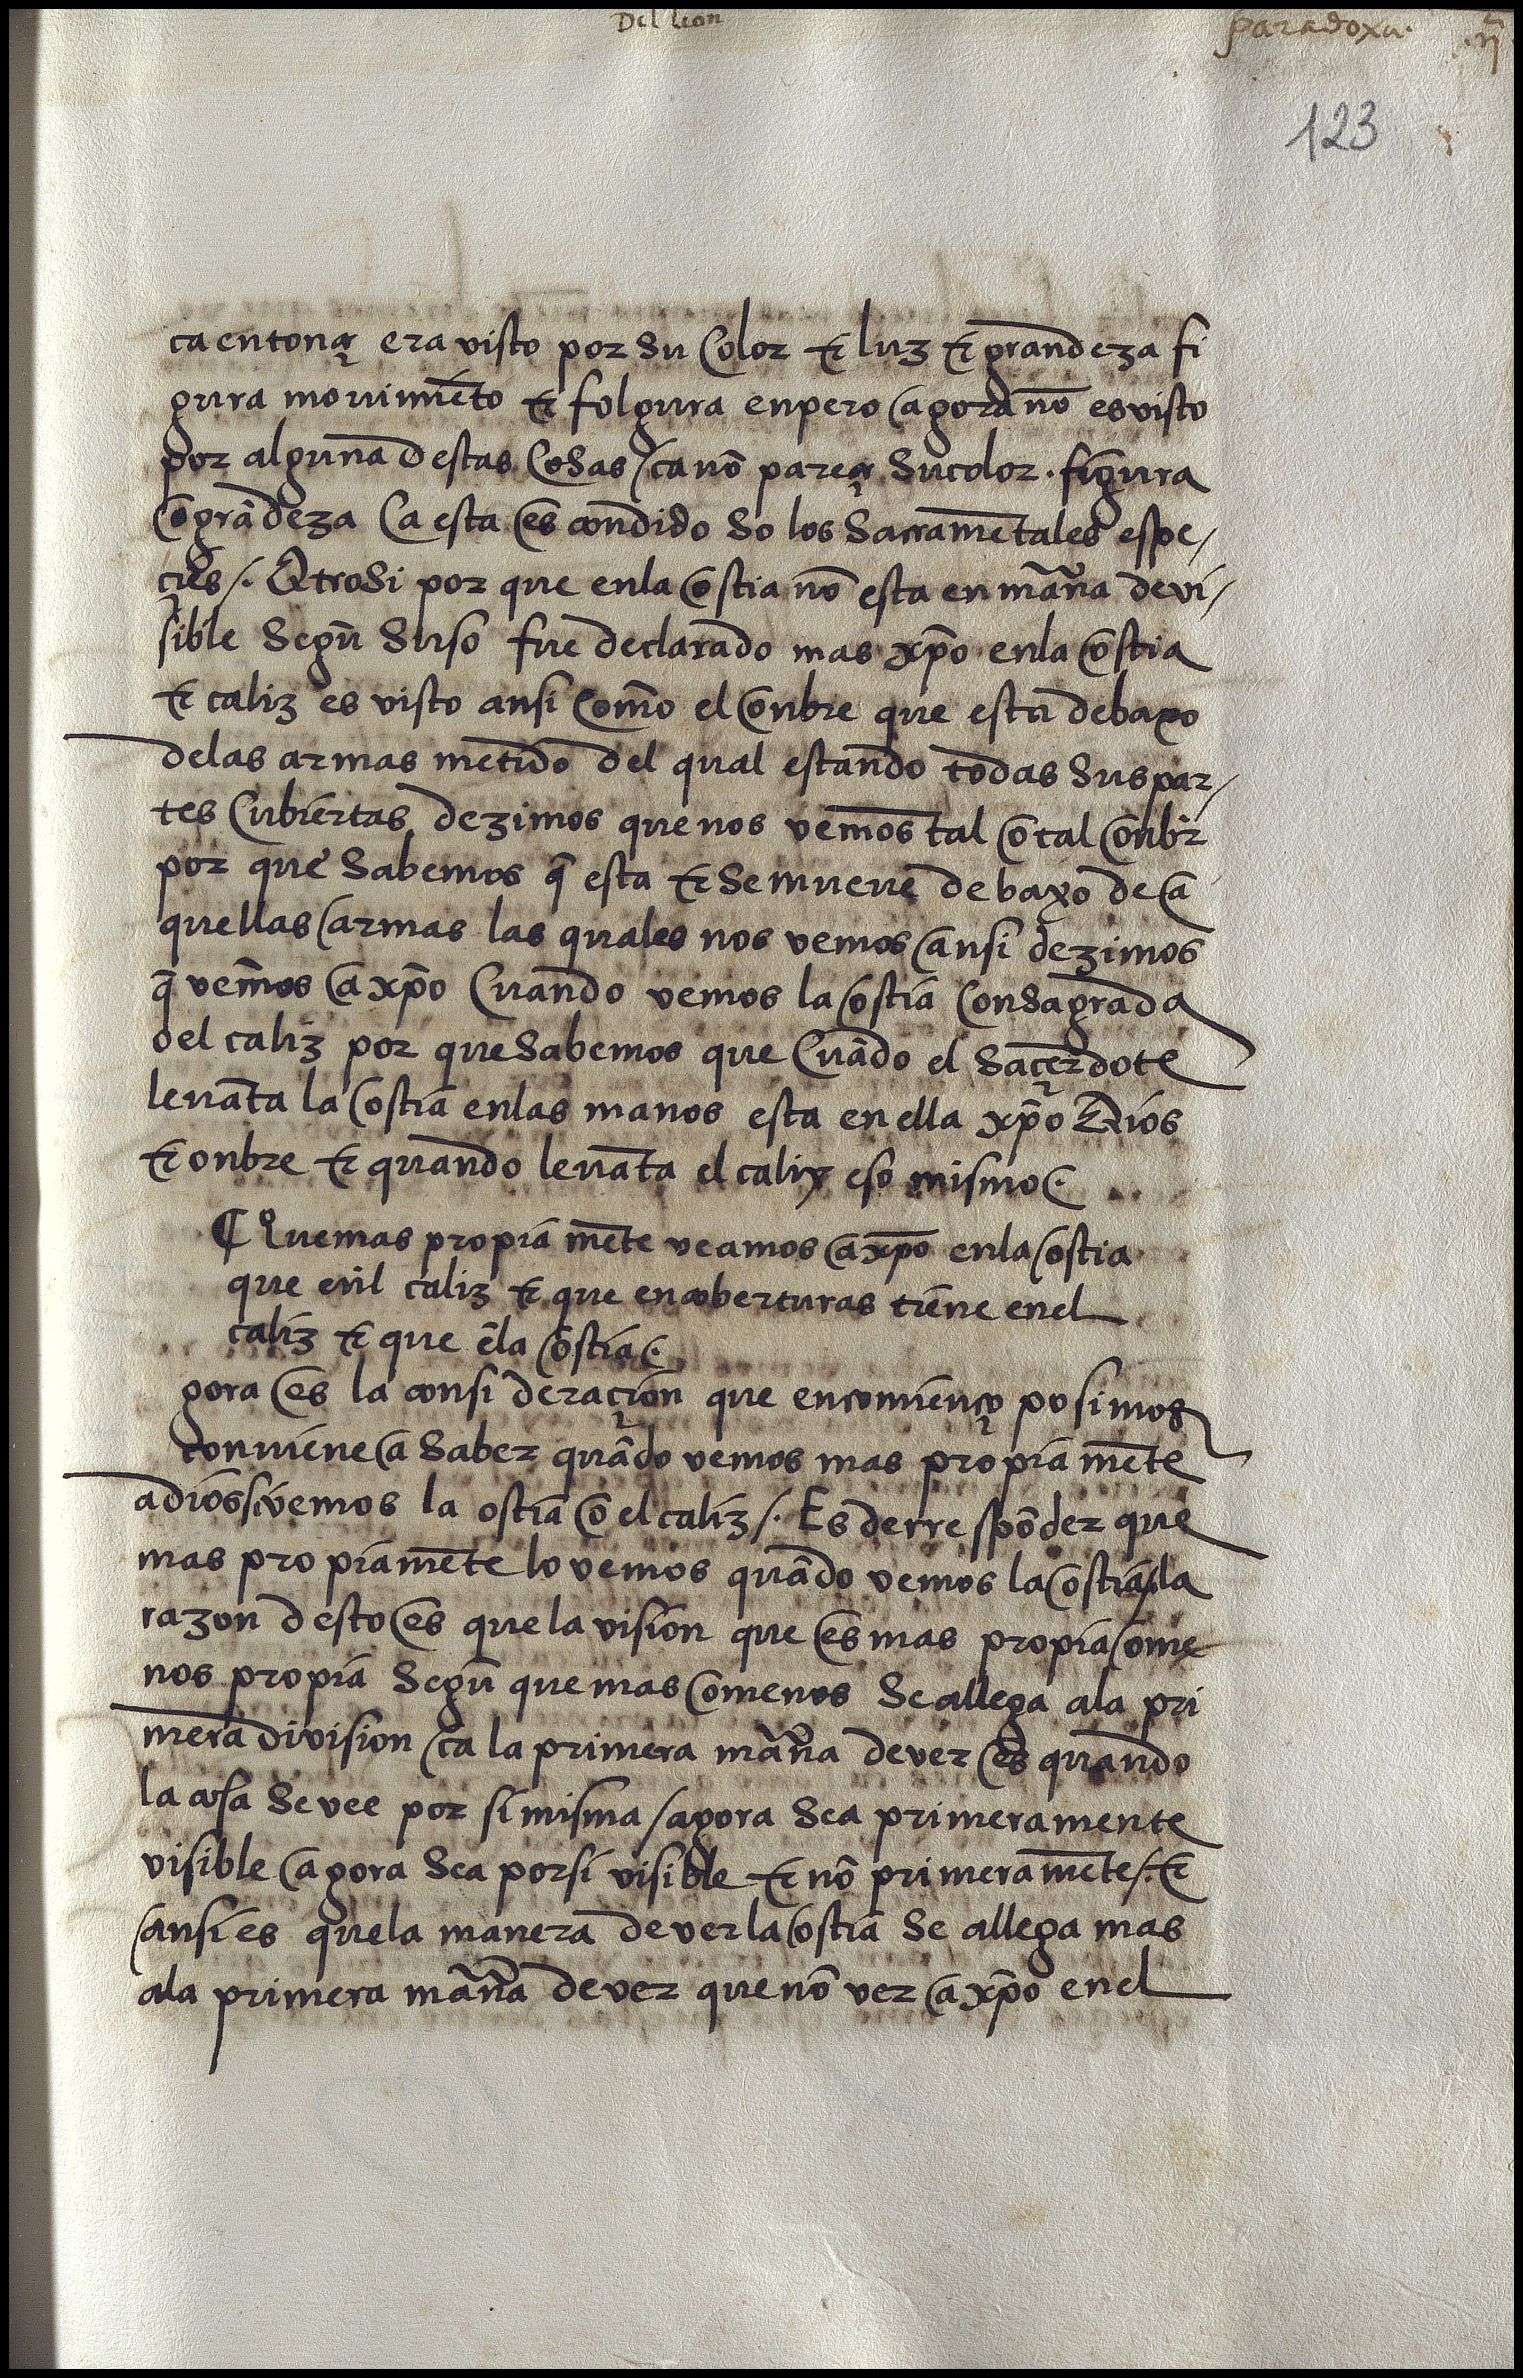 Del leon
paradoxa. .ij.
123
ca entonçe era visto por su color & luz & grandeza fi
gura mouimiẽto & folgura enpero agora nõ es visto
por alguna destas cosas / ca nõ pareçe su color. figura
o grãdeza Ca esta escondido so los sacramẽtales espe/
çies /. Otrosi por que enla ostia nõ esta en mãña de vi/
sible segũ suso fue declarado mas xp̃o enla ostia
& caliz es visto ansi com̃o el onbre que esta debaxo
delas armas metido del qual estando todas sus par/
tes cubiertas dezimos que nos vemos tal o tal onbre
por que sabemos q̃ esta & se mueue debaxo de a
quellas armas las quales nos vemos ansi dezimos
q̃ vemos a xp̃o Cuando vemos la ostia consagrada
del caliz por que sabemos que Cuãdo el saçerdote
leuãta la ostia enlas manos esta en ella xp̃o Dios
& onbre & quando leuãta el calix eso mismo.
¶ Que mas propia mẽte veamos a xp̃o enla ostia
que enl caliz & que encoberturas tiene enel
caliz & que ẽla ostia.
gora es la consideraçion que en comienço posimos
conuiene a saber quãdo vemos mas propia mẽte
a dios si vemos la ostia o el caliz /. Es de rrespõder que
mas propiamẽte lo vemos quãdo vemos la ostia / la
razon desto es que la vision que es mas propia o me
nos propia segũ que mas o menos se allega ala pri
mera division / ca la primera mãña de ver es quando
la cosa se vee por si misma / agora sea primeramente
visible agora sea por si visible & nõ primeramẽte /. &
ansi es que la manera de ver la ostia se allega mas
ala primera mãña de ver que nõ ver a xp̃o enel